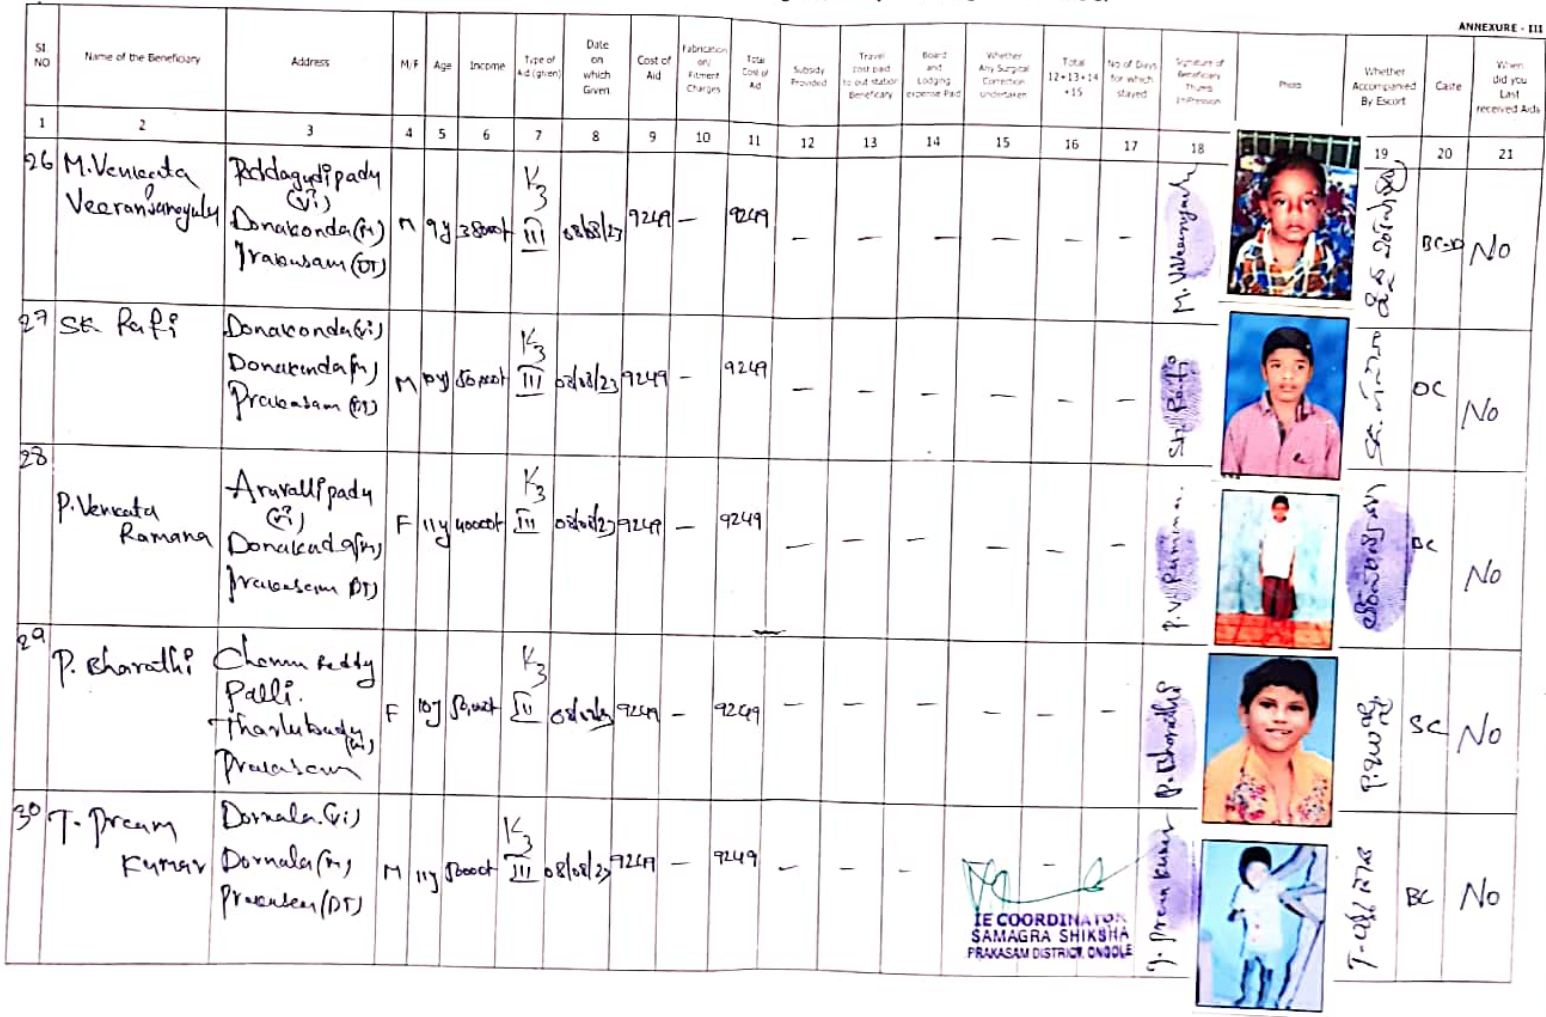 ANNEXURE - III
SI. NO
Name of the Beneficiary
Address
M/F
Age
Income
Type of Aid (given)
Date on which Given
Cost of Aid
Fabrication on/ Fitment Charges
Total Cost of Aid
Subsidy Provided
Travel cost paid to out station Beneficary
Board and Lodging expense Paid
Whether Any Surgical Correction undertaken
Total 12+13+14 +15
No of Days for which stayed
Signature of Beneficiary Thumb Impression
Photo
Whether Accompanied By Escort
Caste
When did you Last received Aids
1 2 3 4 5 6 7 8 9 10 11 12 13 14 15 16 17 18 19 20 21
26 M. Venkata
Veeranjaneyulu
(Vi)
Donakonda (M)
Prakasam (DT)
M 9y K3 III 08/08/23 9249 — 9249 — — — — — —
BC-D No
27 SK Rafi
Donakonda (vi)
Donakonda (M)
Prakasam (DT)
M 10y 50000/- K3 III 08/08/23 9249 — 9249 — — — — — —
SK Rafi
OC No
28
P. Venkata
Ramana
Aravallipadu
(vi)
(M)
Prakasam DT)
F 11y 40000/- K3 III 08/08/23 9249 — 9249 — — — — — —
BC No
29 P. Bharathi
Reddy
Palli.
(M)
Prakasam
F 10y K3 9249 — 9249 — — — — — —
P. Bharathi
SC No
30 T. Pream
Kumar
Dornala (vi)
Dornala (M)
Prakasam (DT)
M 11y 50000/- K3 III 08/08/23 9249 — 9249 — — — —
T. Pream Kumar
BC No
IE COORDINATOR
SAMAGRA SHIKSHA
PRAKASAM DISTRICT, ONGOLE